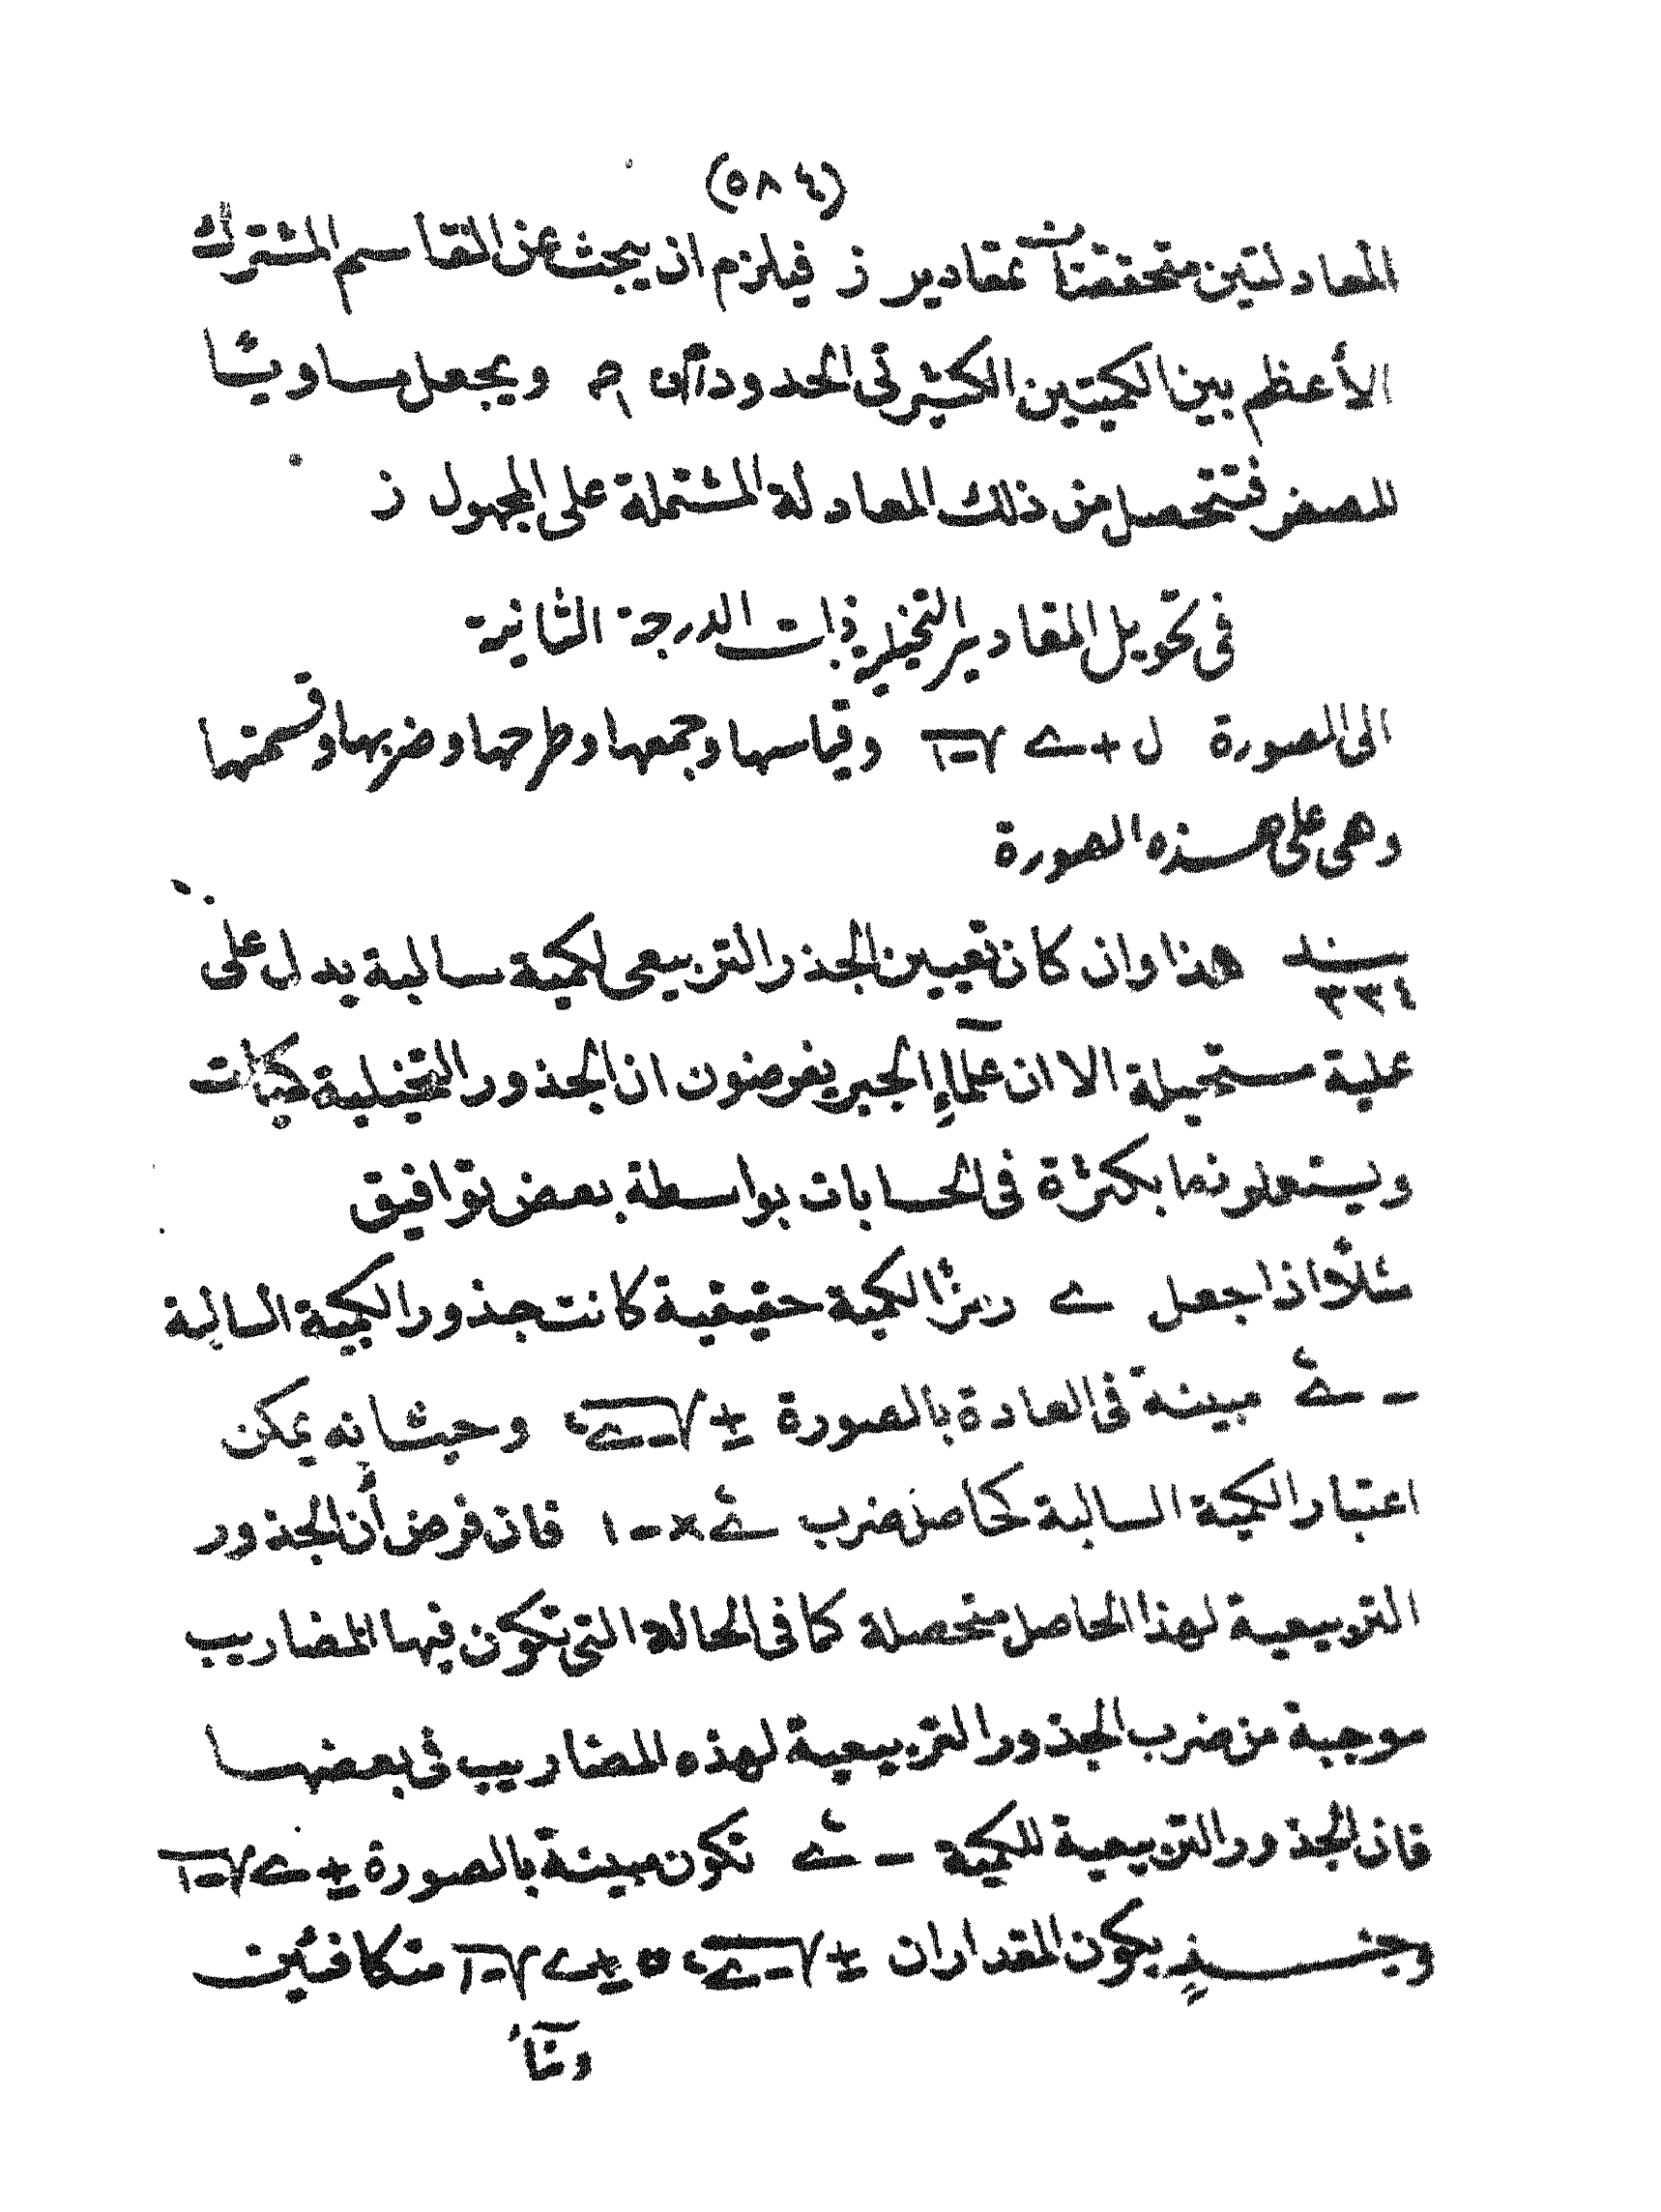 (٥٨٤)
المعادلتين متحققتان بمقادير ز فيلزم ان يبحث عن القاسم المشترك
الأعظم بين الكميتين الكثيرتى الحدود و م ويجعل مساويًا
للصفر فتتحصل من ذلك المعادلة المشتملة على المجهول ز
فى تحويل المقادير التخيلية ذات الدرجة الثانية
الى الصورة ل + ے √-١ وقياسها وجمعها وطرحها وضربها وقسمتها
وهى على هذه الصورة
بند هذا وان كان تعيين الجذر التربيعى لكمية سالبة يدل على
٣٣٤
عملية مستحيلة الا ان علماء الجبر يفرضون ان الجذور التخيلية كميات
ويستعملونها بكثرة فى الحسابات بواسطة بعض توافيق
مثلاً اذا جعل ے رمزًا لكمية حقيقية كانت جذور الكمية السالبة
- ے٢ مبينة فى العادة بالصورة ± √-ے٢ وحيث انه يمكن
اعتبار الكمية السالبة كحاصل ضرب ے٢ × - ١ فان فرض أن الجذور
التربيعية لهذا الحاصل متحصلة كما فى الحالة التى تكون فيها المضاريب
موجبة من ضرب الجذور التربيعية لهذه المضاريب فى بعضها
فان الجذور التربيعية للكمية - ے٢ تكون مبينة بالصورة ± ے √-١
وحينئذٍ يكون المقداران ± √-ے٢ ه ± ے √-١ متكافئين